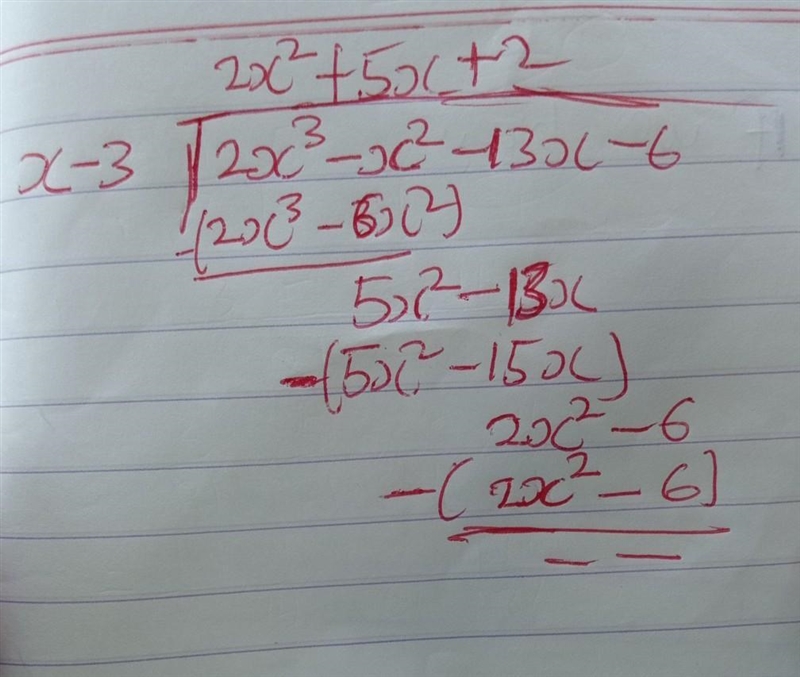 2x² + 5x + 2
x - 3 √2x³ - x² - 13x - 6
-(2x³ - 6x²)
5x² - 13x
-(5x² - 15x)
2x² - 6
-(2x² - 6)